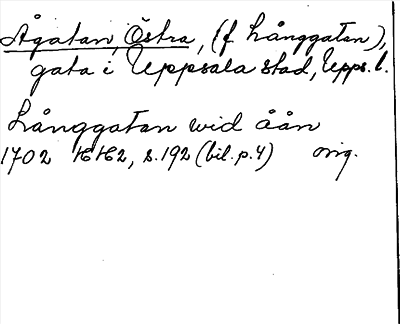 Ågatan, Östra, (f Långgatan),
gata i Uppsala stad, Upps. l.
Långgatan wid åån
1702 s. 192 (bil. p. 4) orig.